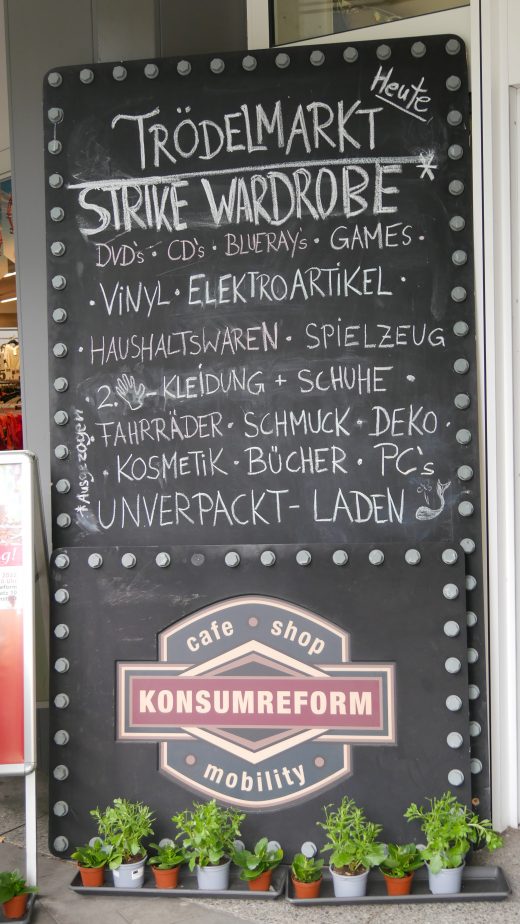 Heute
TRÖDELMARKT
STRIKE WARDROBE *
DVD's · CD's · BLUERAY's · GAMES ·
· ViNYL · ELEKTROARTiKEL ·
· HAUSHALTSWAREN · SPIELZEUG
· 2. -KLEIDUNG + SCHUHE ·
FAHRRÄDER · SCHMUCK · DEKO ·
· KOSMETiK · BÜCHER · PC's
UNVERPACKT- LADEN
*Ausgezogen
cafe · shop
KONSUMREFORM
mobility